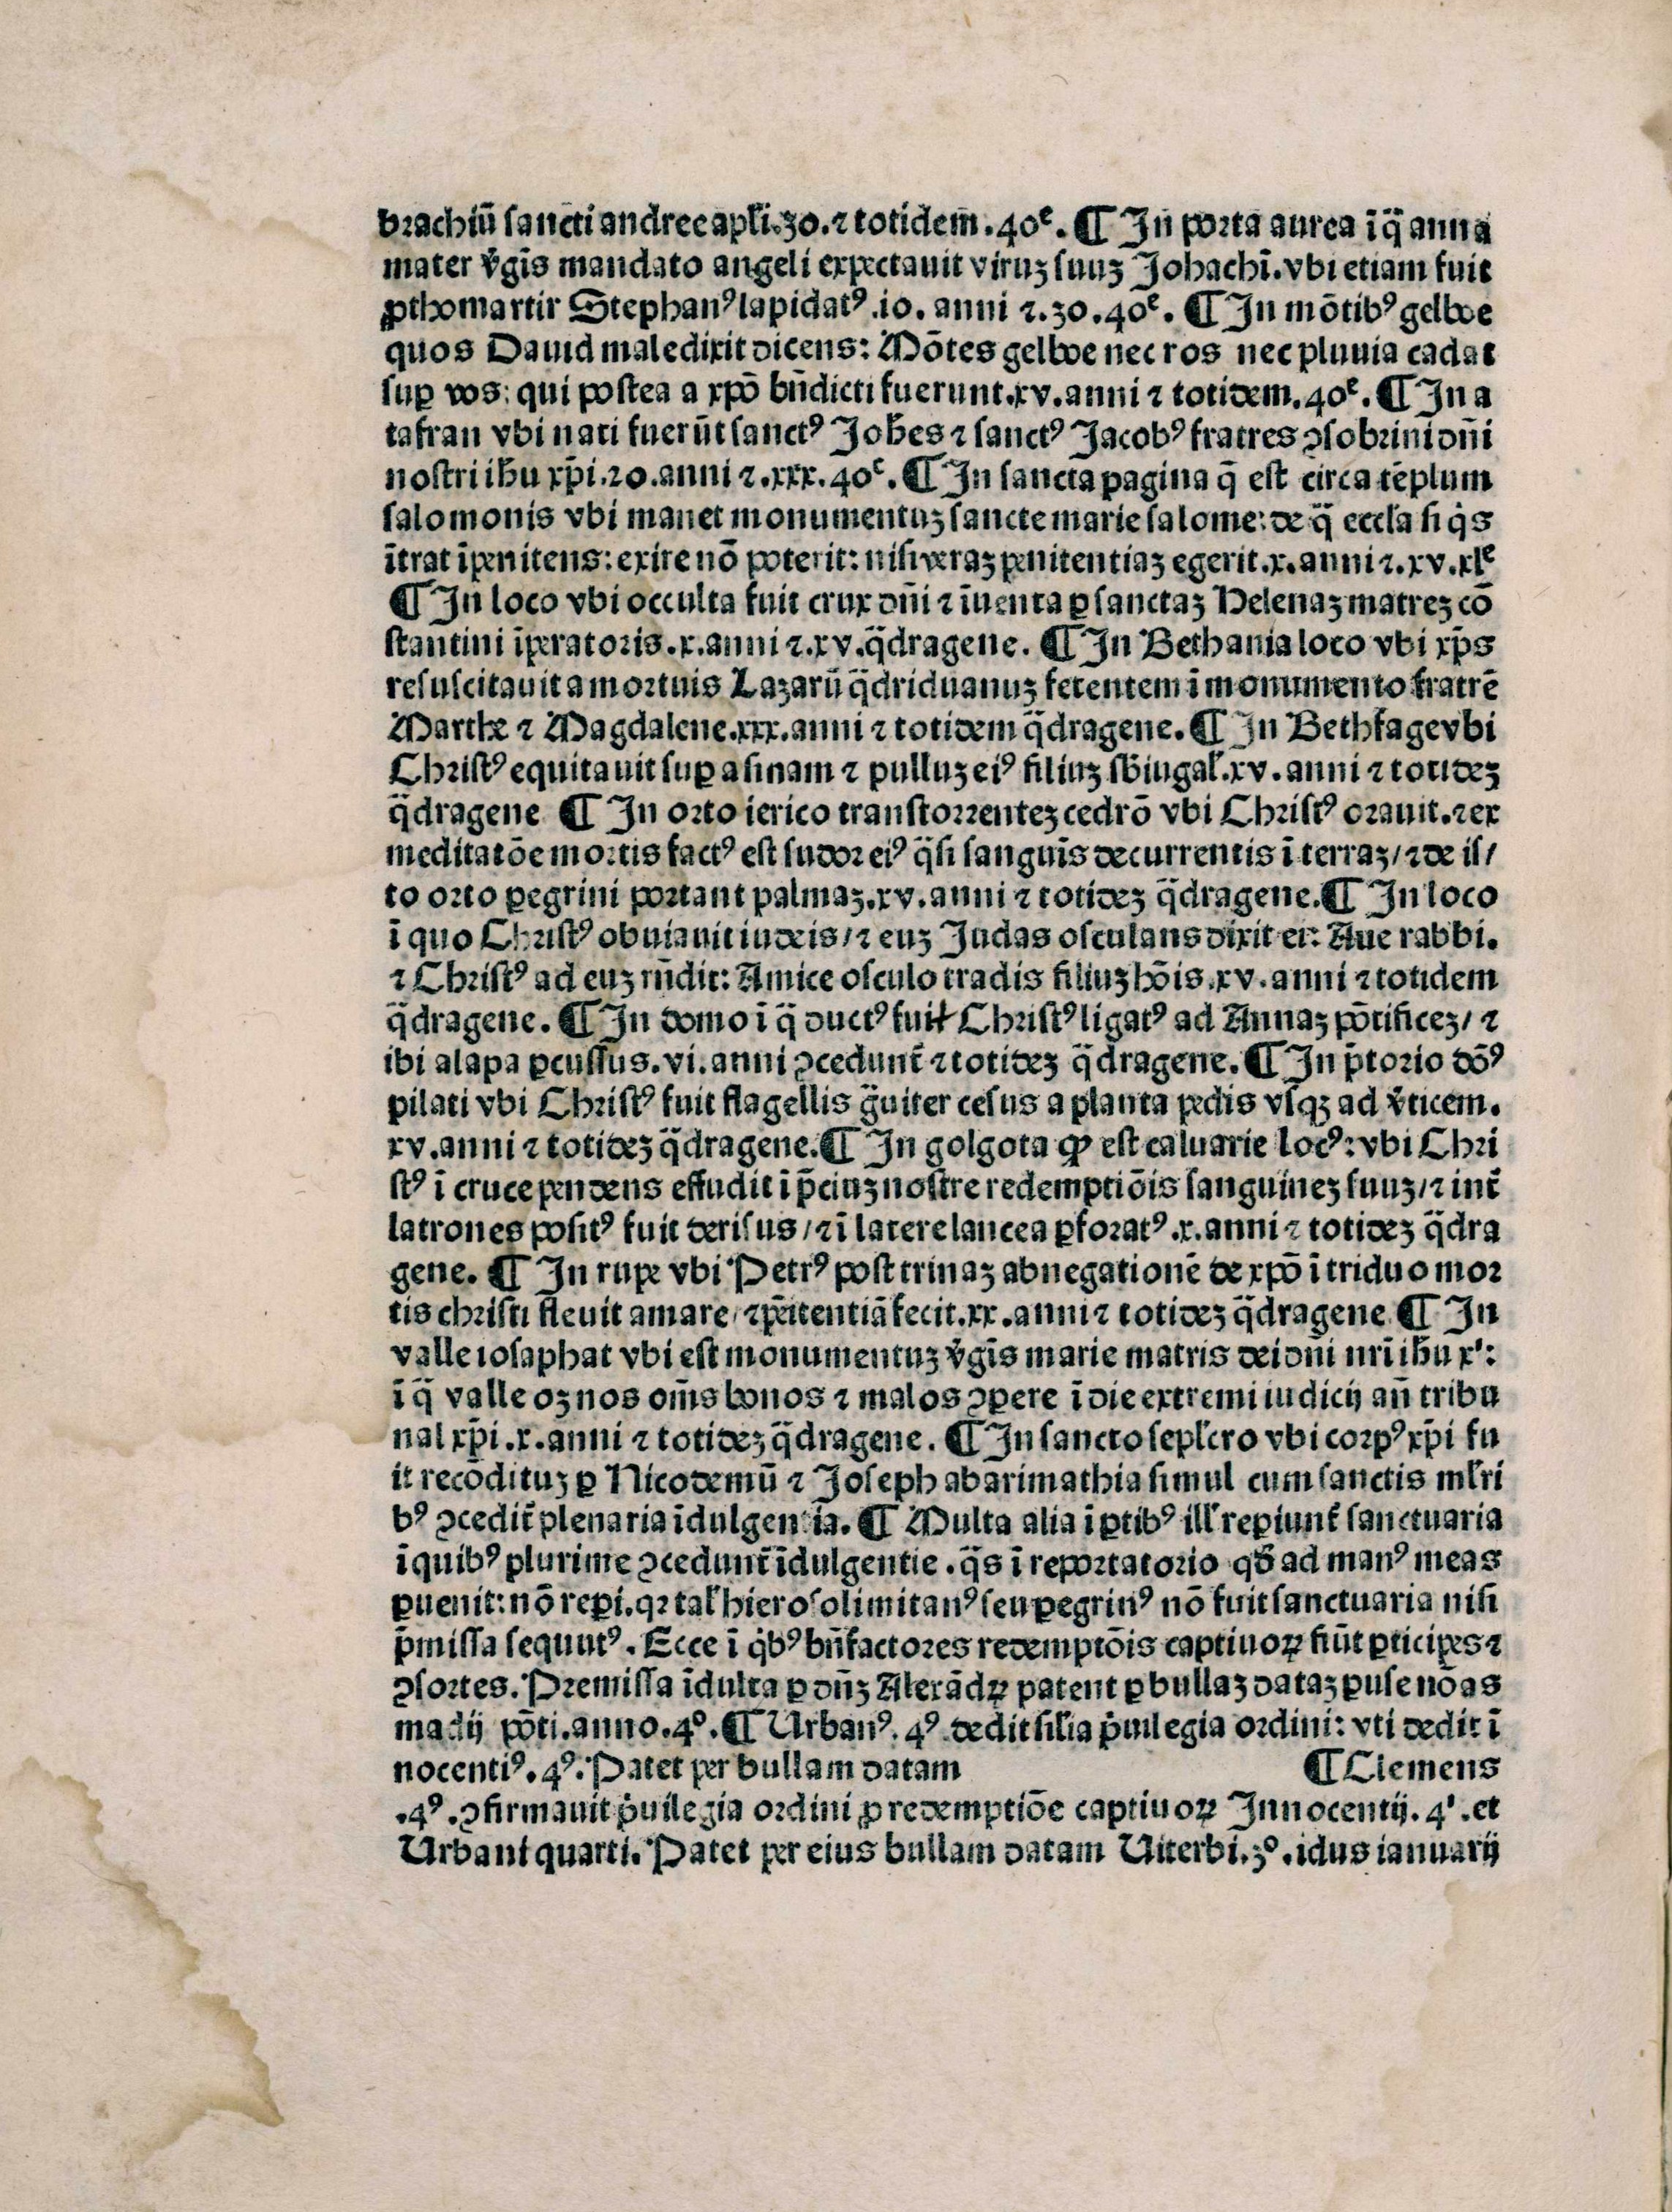 brachiū ſancti andree apl̄i.30.⁊ totidem̄.40ᵉ.¶ In porta aurea ī q̈ anna
mater v̄gīs mandato angeli expectauit viruꝫ ſuuꝫ Johachī.vbi etiam fuit
ꝓthomartir Stephanꝰ lapidatꝰ.10. anni ⁊.30.40ᵉ. ¶ In mōtibꝰ gelboe
quos Dauid maledixit dicens: Mōtes gelboe nec ros nec pluuia cadat
ſuꝑ vos: qui poſtea a xp̄o bn̄dicti fuerunt.xv.anni ⁊ totidem.40ᵉ.¶ In a
tafran vbi nati fuerūt ſanctꝰ Joh̄es ⁊ ſanctꝰ Jacobꝰ fratres ꝯſobrini dn̄i
noſtri ih̄u xp̄i.20.anni ⁊.xxx.40ᵉ.¶ In ſancta pagina q̄ eſt circa tēplum
ſalomonis vbi manet monumentuꝫ ſancte marie ſalome: de q̈ eccl̄a ſi q̇s
ītrat īpenitens: exire nō poterit: niſi veraꝫ penitentiaꝫ egerit.x.anni ⁊.xv.xlᵉ
¶ In loco vbi occulta fuit crux dn̄i ⁊ īuenta ꝑ ſanctaꝫ Helenaꝫ matreꝫ cō
ſtantini īperatoris.x.anni ⁊.xv.q̈dragene. ¶ In Bethania loco vbi xp̄s
reſuſcitauit a mortuis Lazarū q̈driduanuꝫ fetentem ī monumento fratrē
Marthe ⁊ Magdalene.xxx.anni ⁊ totidem q̈dragene.¶ In Bethfage vbi
Chriſtꝰ equitauit ſuꝑ aſinam ⁊ pulluꝫ eiꝰ filiuꝫ ſb̄iugal̄.xv.anni ⁊ totideꝫ
q̈dragene ¶ In orto ierico tranſtorrenteꝫ cedrō vbi Chriſtꝰ orauit.⁊ ex
meditatōe mortis factꝰ eſt ſudor eiꝰ q̈ſi ſanguīs decurrentis ī terraꝫ/⁊ de iſ/
to orto ꝑegrini portant palmaꝫ.xv.anni ⁊ totideꝫ q̈dragene.¶ In loco
ī quo Chriſtꝰ obuiauit iudeis/⁊ euꝫ Judas oſculans dixit ei: Aue rabbi.
⁊ Chriſtꝰ ad euꝫ rn̄dit: Amice oſculo tradis filiuꝫ hōis.xv.anni ⁊ totidem
q̈dragene.¶ In domo ī q̈ ductꝰ fuit Chriſtꝰ ligatꝰ ad Annaꝫ pōtificeꝫ/⁊
ibi alapa ꝑcuſſus.vi.anni ꝯcedunt̄ ⁊ totideꝫ q̈dragene.¶ In p̄torio dōꝰ
pilati vbi Chriſtꝰ fuit flagellis g̈uiter ceſus a planta pedis vſqꝫ ad v̄ticem.
xv.anni ⁊ totideꝫ q̈dragene.¶ In golgota ꝙ eſt caluarie locꝰ: vbi Chri
ſtꝰ ī cruce pendens effudit ī p̄ciuꝫ noſtre redemptiōis ſanguineꝫ ſuuꝫ/⁊ int̄
latrones poſitꝰ fuit deriſus/⁊ ī latere lancea ꝑforatꝰ.x.anni ⁊ totideꝫ q̈dra
gene. ¶ In rupe vbi Petrꝰ poſt trinaꝫ abnegationē de xp̄o ī triduo mor
tis chriſti fleuit amare/⁊ pēitentiā fecit.xx.anni ⁊ totideꝫ q̈dragene ¶ In
valle ioſaphat vbi eſt monumentuꝫ v̄gīs marie matris dei dn̄i nr̄i ih̄u xⁱ:
ī q̈ valle oꝫ nos om̄s bonos ⁊ malos ꝯꝑere ī die extremi iudicij an̄ tribu
nal xp̄i.x.anni ⁊ totideꝫ q̈dragene. ¶ In ſancto ſepl̄cro vbi corpꝰ xp̄i fu
it recōdituꝫ ꝑ Nicodemū ⁊ Joſeph abarimathia ſimul cum ſanctis ml̄ri
bꝰ ꝯcedit̄ plenaria īdulgentia.¶ Multa alia ī ꝑtibꝰ ill̄ reꝑiunt̄ ſanctuaria
ī quibꝰ plurime ꝯcedunt̄ īdulgentie.q̈s ī reportatorio qd̄ ad manꝰ meas
ꝑuenit: nō reꝑi.qꝛ tal̄ hieroſolimitanꝰ ſeu ꝑegrinꝰ nō fuit ſanctuaria niſi
p̄miſſa ſequutꝰ. Ecce ī q̇bꝰ bn̄factores redemptōis captiuoꝝ fiūt ꝑticipes ⁊
ꝯſortes. Premiſſa īdulta ꝑ dn̄ꝫ Alexādꝝ patent ꝑ bullaꝫ dataꝫ ꝑuſe nōas
madij pōti.anno.4º.¶ Urbanꝰ.4ꝰ dedit ſil̄ia ṗuilegia ordini: vti dedit ī
nocentiꝰ.4ꝰ. Patet per bullam datam ¶ Clemens
.4ꝰ.ꝯfirmauit ṗuilegia ordini ꝓ redemptiōe captiuoꝝ Innocentij.4ⁱ.et
Urbani quarti. Patet per eius bullam datam Uiterbi.3º.idus ianuarij